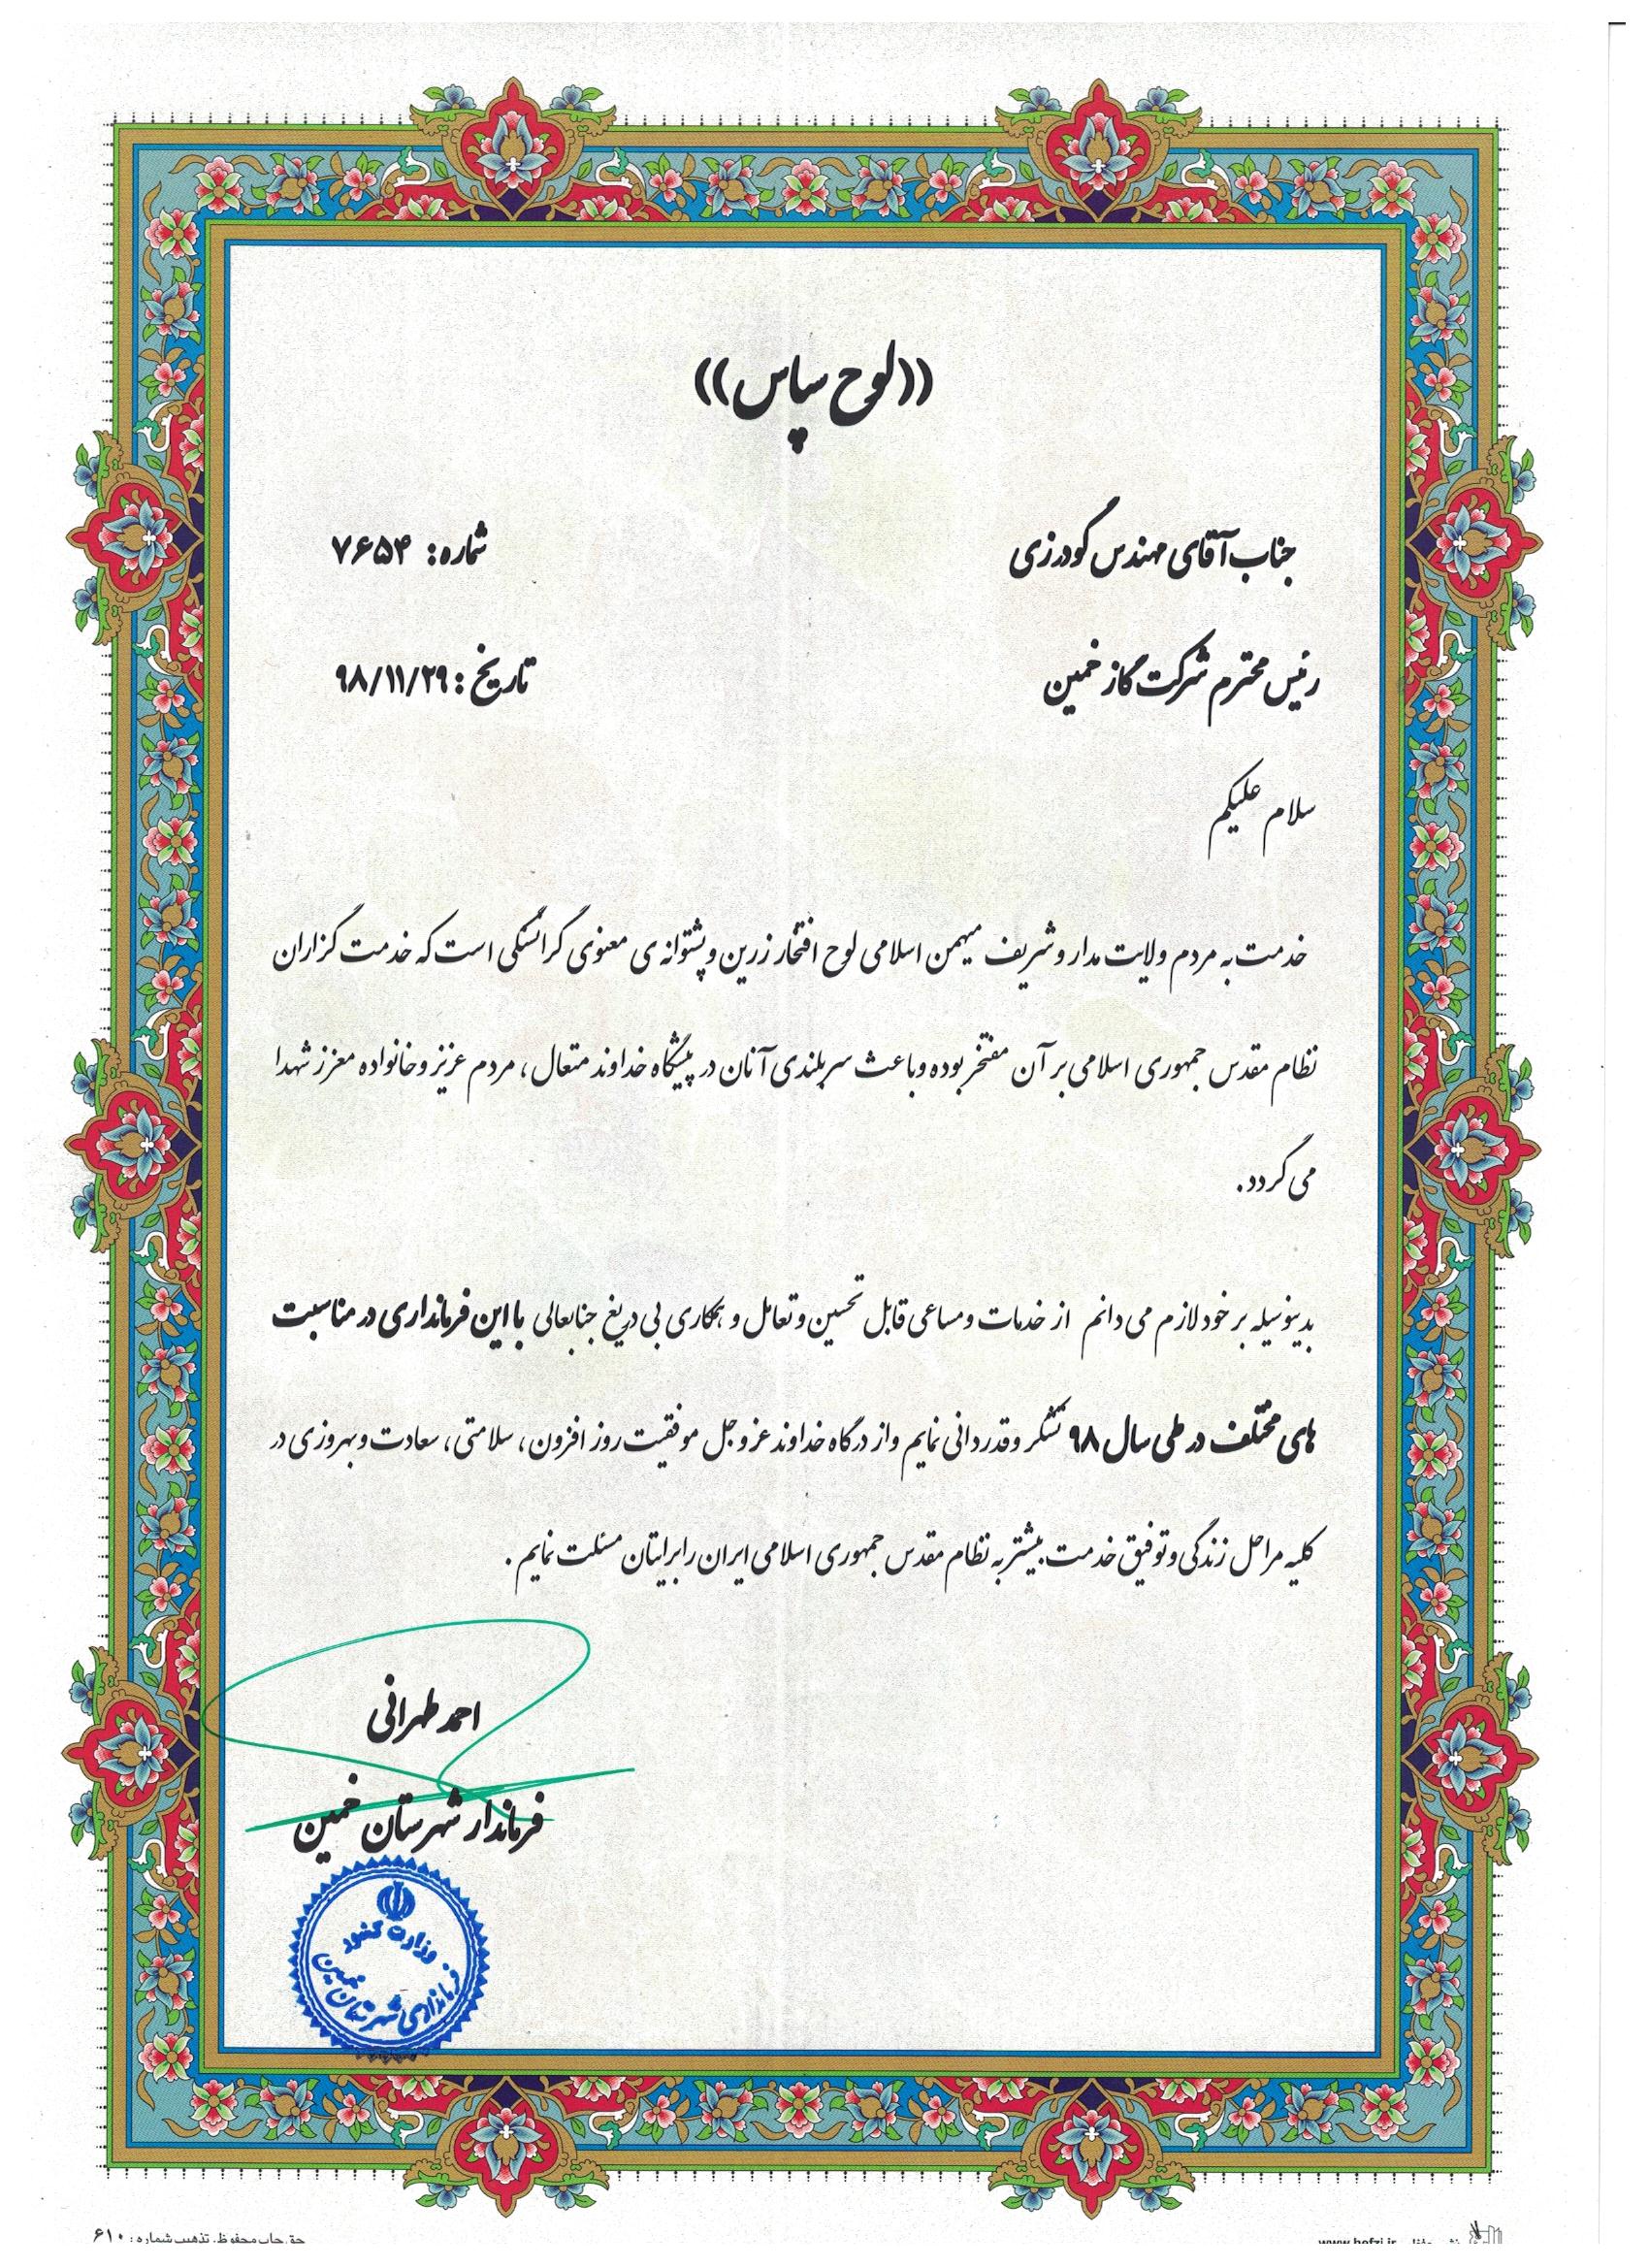 ((لوح سپاس))
جناب آقای مهندس گودرزی
شماره: ۷۶۵۴
رئیس محترم شرکت گاز خمین
تاریخ: ۹۸/۱۱/۲۹
سلام علیکم
خدمت به مردم ولایت مدار و شریف میهمن اسلامی لوح افتخار زرین و پشتوانه ی معنوی گرانسنگی است که خدمت گزاران
نظام مقدس جمهوری اسلامی بر آن مفتخر بوده و باعث سربلندی آنان در پیشگاه خداوند متعال، مردم عزیز و خانواده معزز شهدا
می گردد.
بدینوسیله بر خود لازم می دانم از خدمات و مساعی قابل تحسین و تعامل و همکاری بی دریغ جنابعالی با این فرمانداری در مناسبت
های مختلف در طی سال ۹۸ تشکر و قدردانی نمایم و از درگاه خداوند عزوجل موفقیت روز افزون، سلامتی، سعادت و بهروزی در
کلیه مراحل زندگی و توفیق خدمت بیشتر به نظام مقدس جمهوری اسلامی ایران را برایتان مسئلت نمایم.
احمد طهرانی
فرماندار شهرستان خمین
وزارت کشور
فرمانداری شهرستان خمین
حق چاپ محفوظ. تذهیب شماره: ۶۱۰
www.hofzi.ir